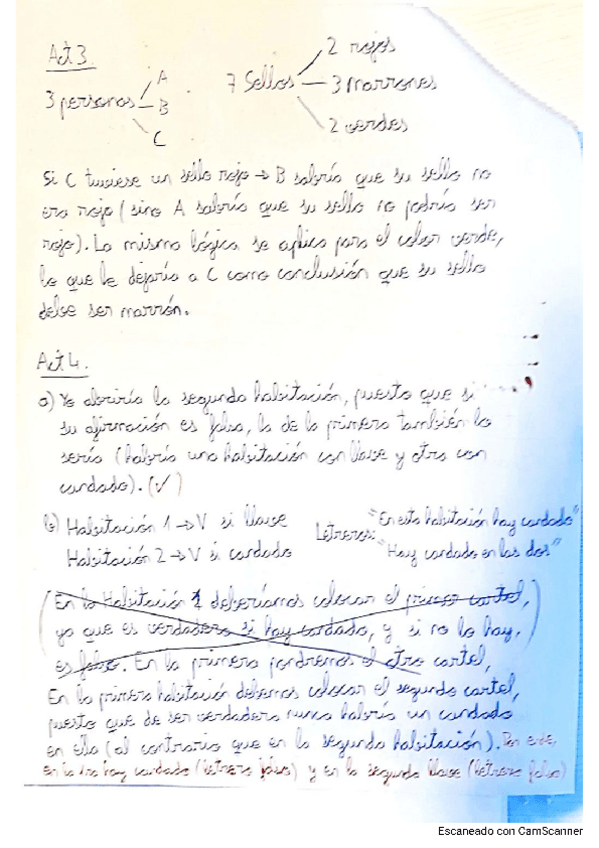 Act 3.
3 personas
A
B
C
7 sellos
2 rojos
3 marrones
2 verdes
Si C tuviese un sello rojo → B sabría que su sello no
era rojo (sino A sabría que su sello no podría ser
rojo). La misma lógica se aplica para el color verde,
lo que le dejaría a C como conclusión que su sello
debe ser marrón.
Act 4.
a) Yo abriría la segunda habitación, puesto que si
su afirmación es falsa, la de la primera también lo
sería (habría una habitación con llave y otra con
candado). (✓)
b) Habitación 1 → V si llave
Habitación 2 → V si candado
Letreros: "En esta habitación hay candado"
"Hay candado en las dos"
(En la Habitación 1 deberíamos colocar el primer cartel,
ya que es verdadera si hay candado, y si no lo hay,
es falso. En la primera pondremos el otro cartel,)
En la primera habitación debemos colocar el segundo cartel,
puesto que de ser verdadera nunca habría un candado
en ella (al contrario que en la segunda habitación). Por ende,
en la 1ra hay candado (letrero falso) y en la segunda llave (letrero falso)
Escaneado con CamScanner